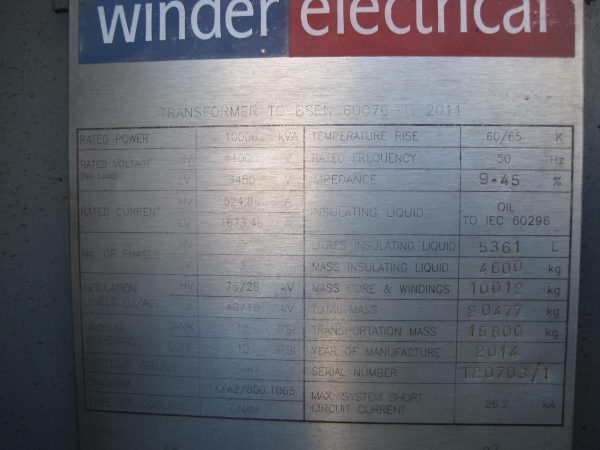 winder electrical
TRANSFORMER TO BSEN 60076-1: 2011
RATED POWER 10000 kVA TEMPERATURE RISE 60/65 K
RATED VOLTAGE (No Load) HV 11000 V RATED FREQUENCY 50 Hz
LV 3450 V IMPEDANCE 9.45 %
RATED CURRENT HV 524.86 A INSULATING LIQUID OIL TO IEC 60296
LV 1673.48 A
No. OF PHASES HV LITRES INSULATING LIQUID 5361 L
LV 3 MASS INSULATING LIQUID 4600 kg
INSULATION LEVELS (LI/AC) HV 75/28 kV MASS CORE & WINDINGS 10012 kg
LV 40/10 kV TOTAL MASS 20477 kg
VACUUM TANK PSI TRANSPORTATION MASS 15800 kg
PSI YEAR OF MANUFACTURE 2014
VECTOR GROUP SERIAL NUMBER T20763/1
DIAGRAM MAX. SYSTEM SHORT CIRCUIT CURRENT 26.2 kA
TYPE OF COOLING ONAN